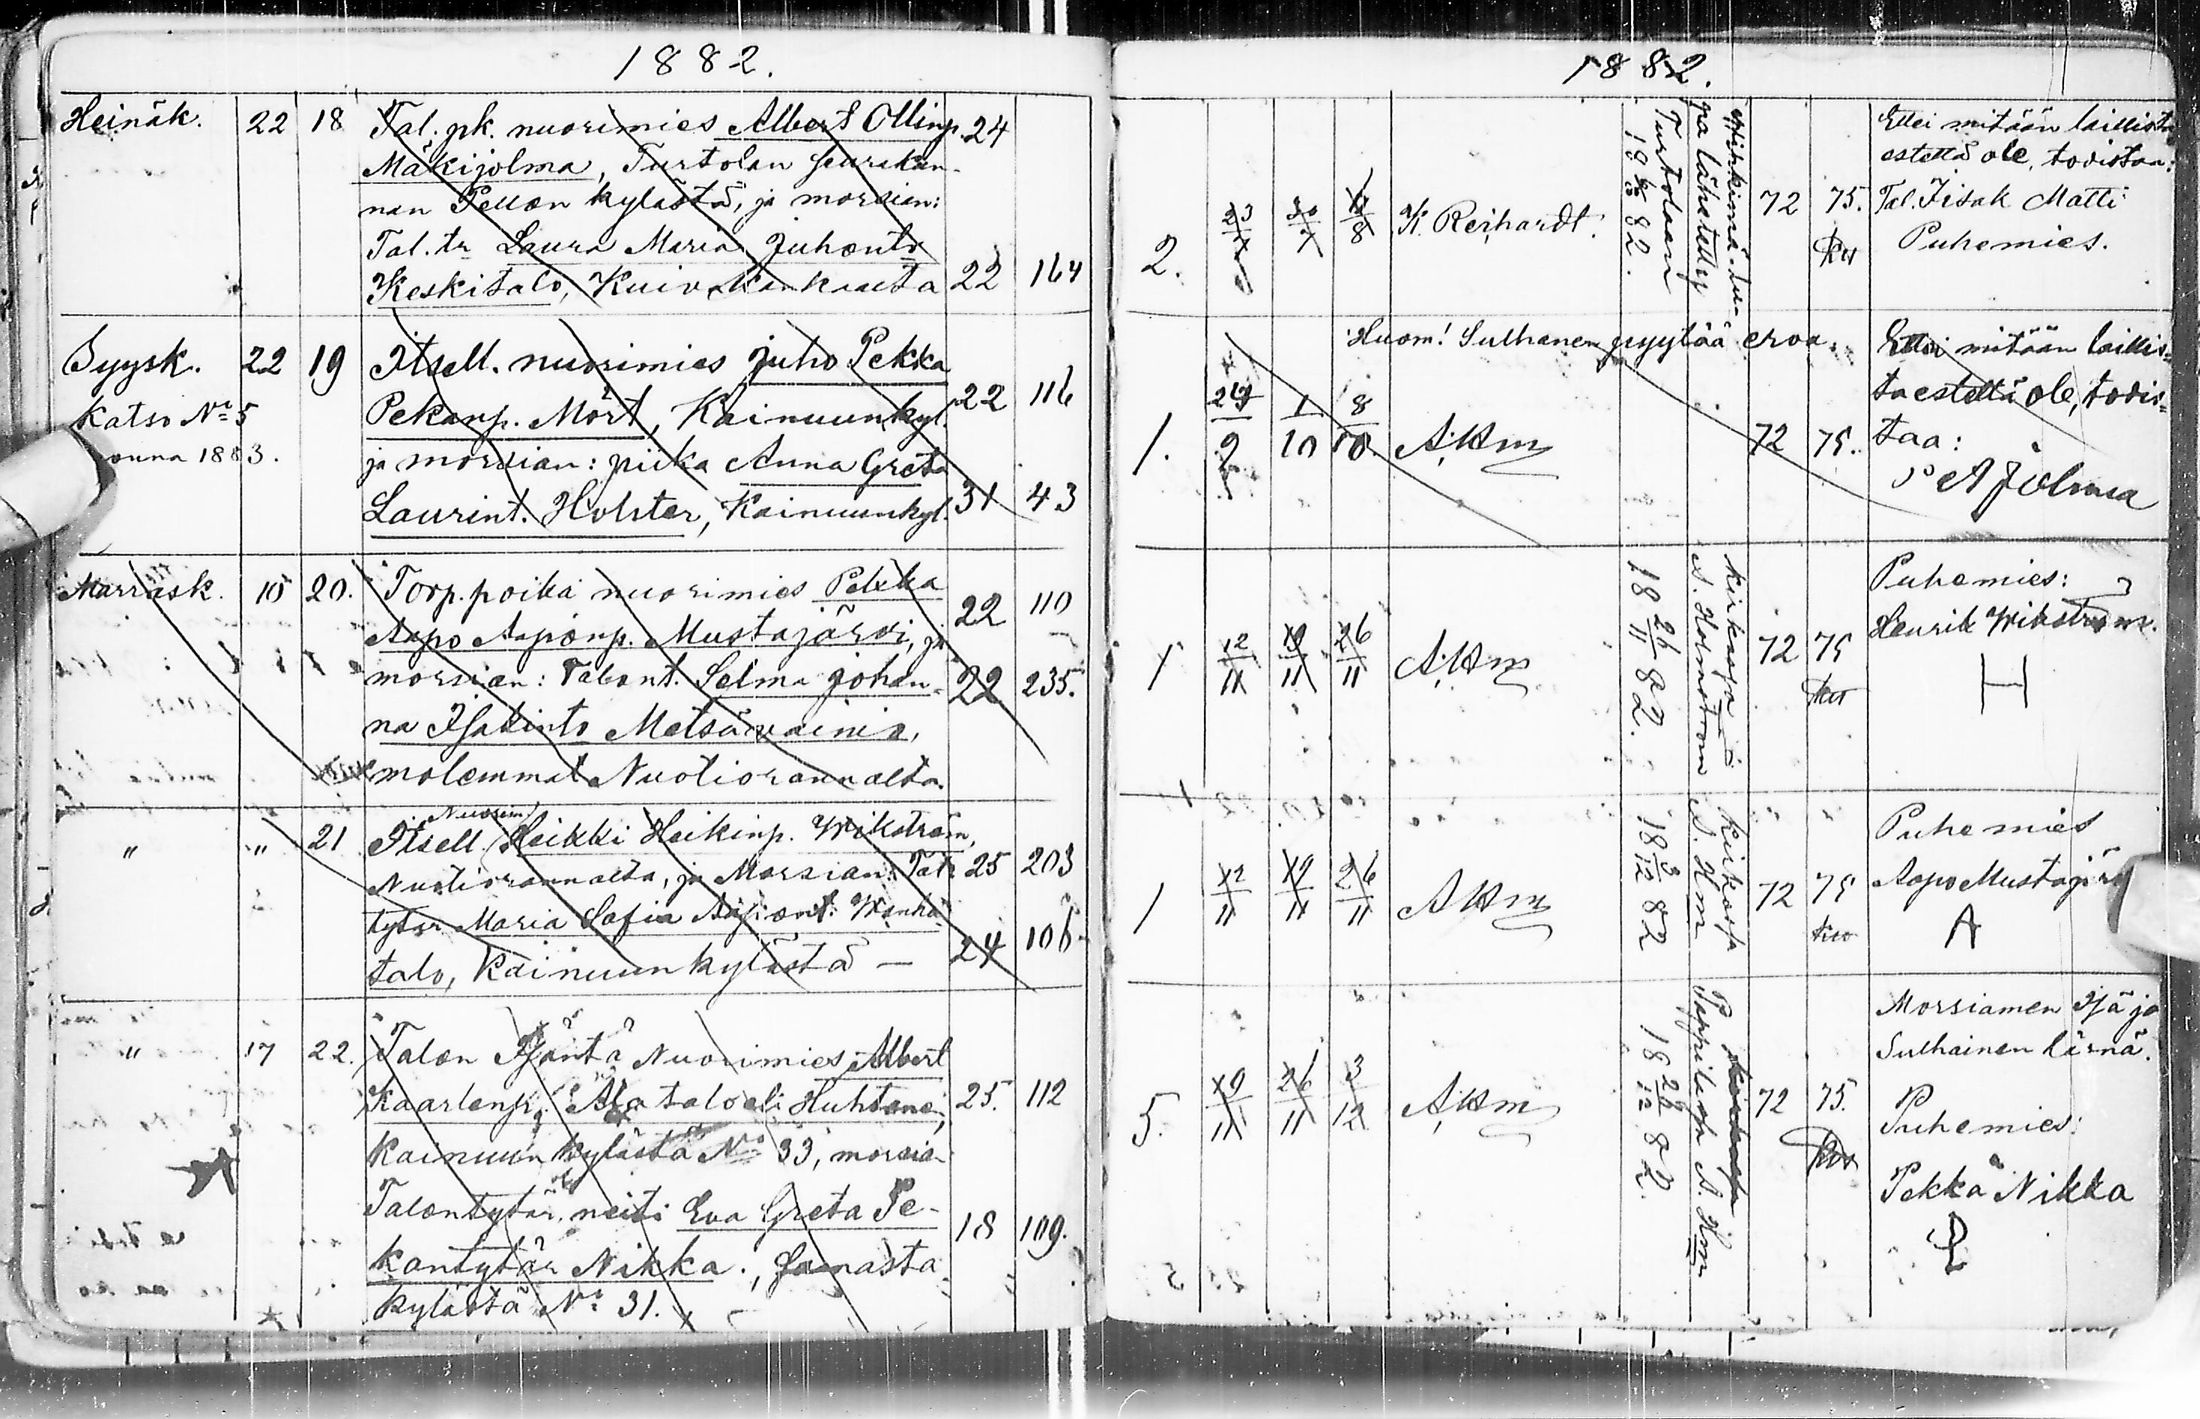 1882.
Heinäk. 22 18 Tal. pk. nuorimies Albert Ollinp. 24
Mäkijolma, Turtolan seurakun-
nan Pellon kylästä, ja morsian:
Tal. tr Laura Maria Juhontr
Keskitalo, Kuivakankaalta 22 164
Syysk. 22 19 Itsell. nuorimies Juho Pekka
Pekanp. Mört, Kainuunkyl. 22 116
Katso No 5
1883.
ja morsian: piika Anna Greta
Laurint. Holster, Kainuunkyl. 31 43
Marrask. 10 20. Torp. poika nuorimies Pekka
Aapo Aaponp. Mustajärvi, ja 22 110
morsian: Talont. Selma Johan- 22 235.
na Isakintr Metsäwainio,
molemmat Nuotiorannalta.
Nuorim
" " 21 Itsell. Heikki Heikinp. Wikström,
Nuotiorannalta, ja Morsian: Tal 25 203
tytär Maria Sofia Aapont. Wanha
talo, Kainuunkylästä — 24 106
" 17 22. Talon Isäntä Nuorimies Albert
Kaarlenp. Alatalo eli Huhtanen, 25. 112
Kainuun kylästä No 33, morsia-
Talontytär, neiti Eva Greta Pe-
kantytär Nikka, samasta 18 109.
kylästä No 31.
1882.
2. 23/7 30/7 6/8 K. Reihardt.
Turtolaan
18 82.
pa lähetetty
72 75.
Ellei mitään laillista
estettä ole, todistaa:
Tal. Iisak Matti
Puhemies.
Huom! Sulhanen pyytää eroa.
1. 24/9 1/10 8/10 AHm 72 75.
Ellei mitään laillis-
ta estettä ole, todis-
taa:
A Jolma
1 12/11 19/11 26/11 AHm
18 26/11 82.
Kirkossa
A. Holmström
72 75
Puhemies:
Henrik Wikström.
H
1 12/11 19/11 26/11 AHm
18 3/12 82
Kirkossa
A. Hm
72 75
Puhemies
Aapo Mustajär
A
5. 19/11 26/11 3/12 AHm
18 28/12 82.
Pappilassa A. Hm
72 75.
Morsiamen Isä ja
Sulhainen läsnä.
Puhemies:
Pekka Nikka